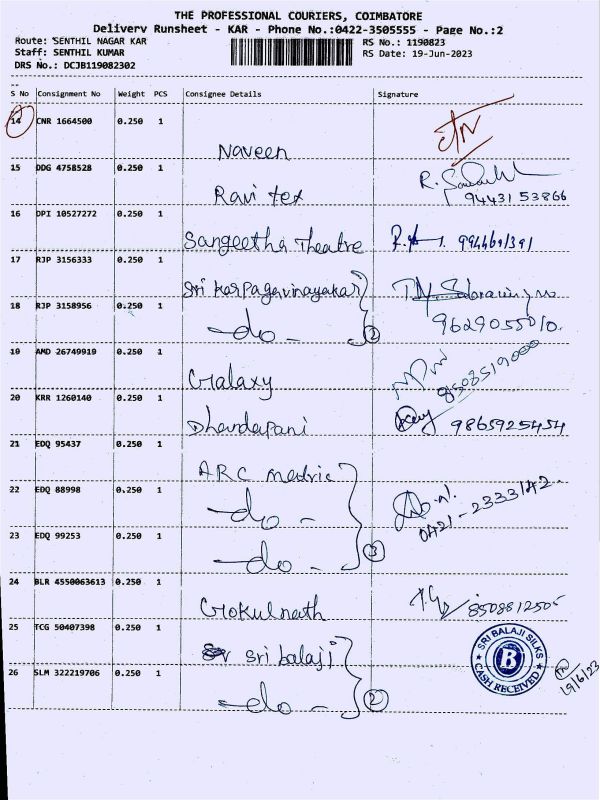 THE PROFESSIONAL COURIERS, COIMBATORE
Delivery Runsheet - KAR - Phone No.:0422-3505555 - Page No.:2
Route: SENTHIL NAGAR KAR
RS No.: 1190823
Staff: SENTHIL KUMAR
RS Date: 19-Jun-2023
DRS No.: DCJB119082302
S No Consignment No Weight PCS Consignee Details Signature
14 CNR 1664500 0.250 1
Naveen
15 DDG 4758528 0.250 1
Ravi tex
94431 53866
16 DPI 10527272 0.250 1
Sangeetha Theatre
17 RJP 3156333 0.250 1
Sri Karpagavinayakar
18 RJP 3158956 0.250 1
-do- 2
9629055010.
19 AMD 26749919 0.250 1
Galaxy
8508519000
20 KRR 1260140 0.250 1
Dhandapani
9865925454
21 EDQ 95437 0.250 1
ARC matric
22 EDQ 88998 0.250 1
-do-
0421-2333142
23 EDQ 99253 0.250 1
-do- 3
24 BLR 4550063613 0.250 1
Gokulnath
8508812505
25 TCG 50407398 0.250 1
Sri balaji
SRI BALAJI SILKS
B
CASH RECEIVED
26 SLM 322219706 0.250 1
-do- 2
19/6/23